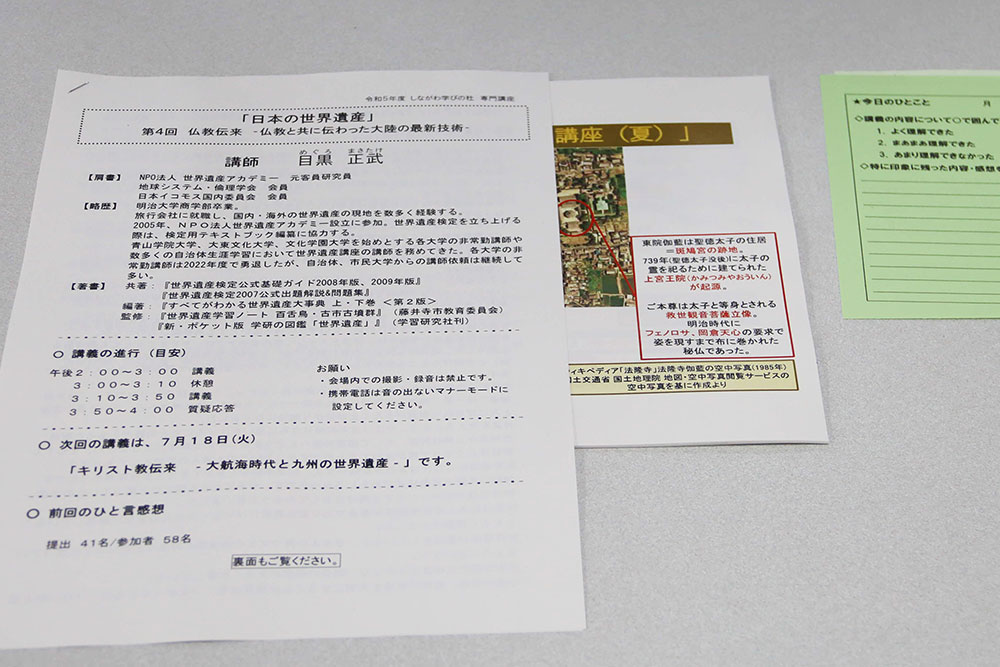 令和5年度 しながわ学びの杜 専門講座
「日本の世界遺産」
第4回 仏教伝来 -仏教と共に伝わった大陸の最新技術-
めぐろ まさたけ
講師 目黒 正武
【肩書】 NPO法人 世界遺産アカデミー 元客員研究員
地球システム・倫理学会 会員
日本イコモス国内委員会 会員
【略歴】 明治大学商学部卒業。
旅行会社に就職し、国内・海外の世界遺産の現地を数多く経験する。
2005年、NPO法人世界遺産アカデミー設立に参加。世界遺産検定を立ち上げる
際は、検定用テキストブック編纂に協力する。
青山学院大学、大東文化大学、文化学園大学を始めとする各大学の非常勤講師や
数多くの自治体生涯学習において世界遺産講座の講師を務めてきた。各大学の非
常勤講師は2022年度で勇退したが、自治体、市民大学からの講師依頼は継続して
多い。
【著書】 共著：『世界遺産検定公式基礎ガイド2008年版、2009年版』
『世界遺産検定2007公式出題解説&問題集』
編著：『すべてがわかる世界遺産大事典 上・下巻 <第2版>
監修：『世界遺産学習ノート 百舌鳥・古市古墳群』（藤井寺市教育委員会）
『新・ポケット版 学研の図鑑「世界遺産」』（学習研究社刊）
○ 講義の進行（目安）
午後2：00～3：00 講義
3：00～3：10 休憩
3：10～3：50 講義
3：50～4：00 質疑応答
お願い
・会場内での撮影・録音は禁止です。
・携帯電話は音の出ないマナーモードに
設定してください。
○ 次回の講義は、7月18日(火)
「キリスト教伝来 -大航海時代と九州の世界遺産-」です。
○ 前回のひと言感想
提出 41名/参加者 58名
裏面もご覧ください。
講座（夏）」
東院伽藍は聖徳太子の住居
＝斑鳩宮の跡地。
739年(聖徳太子没後)に太子の
霊を祀るために建てられた
上宮王院(かみつみやおういん)
が起源。
ご本尊は太子と等身とされる
救世観音菩薩立像。
明治時代に
フェノロサ、岡倉天心の要求で
姿を現すまで布に巻かれた
秘仏であった。
ィキペディア「法隆寺」法隆寺伽藍の空中写真(1985年)
国土交通省 国土地理院 地図・空中写真閲覧サービスの
空中写真を基に作成より
★今日のひとこと 月
◇講義の内容について○で囲んで
1. よく理解できた
2. まあまあ理解できた
3. あまり理解できなかった
◇特に印象に残った内容・感想を